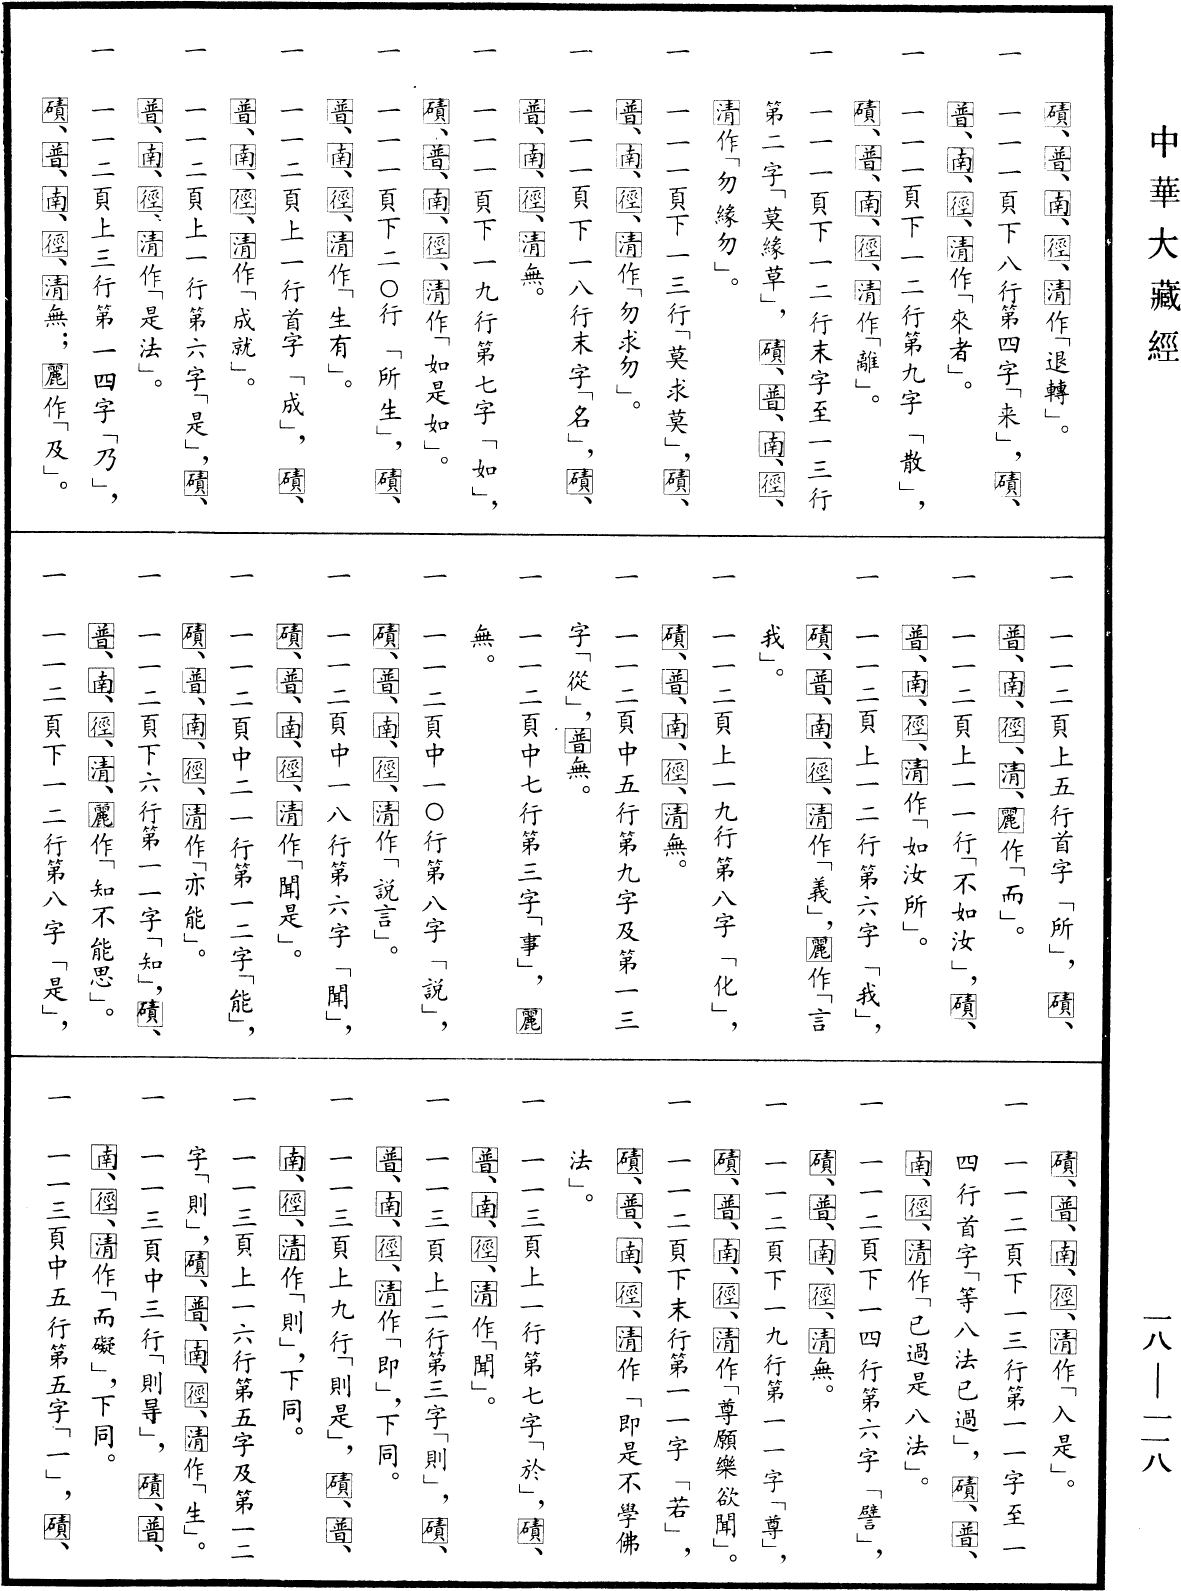 中華大藏經
磧、普、南、徑、清作「退轉」。
一 一一一頁下八行第四字「来」，磧、
普、南、徑、清作「來者」。
一 一一一頁下一二行第九字「散」，
磧、普、南、徑、清作「離」。
一 一一一頁下一二行末字至一三行
第二字「莫緣草」，磧、普、南、徑、
清作「勿緣勿」。
一 一一一頁下一三行「莫求莫」，磧、
普、南、徑、清作「勿求勿」。
一 一一一頁下一八行末字「名」，磧、
普、南、徑、清無。
一 一一一頁下一九行第七字「如」，
磧、普、南、徑、清作「如是如」。
一 一一一頁下二〇行「所生」，磧、
普、南、徑、清作「生有」。
一 一一二頁上一行首字「成」，磧、
普、南、徑、清作「成就」。
一 一一二頁上一行第六字「是」，磧、
普、南、徑、清作「是法」。
一 一一二頁上三行第一四字「乃」，
磧、普、南、徑、清無；麗作「及」。
一 一一二頁上五行首字「所」，磧、
普、南、徑、清、麗作「而」。
一 一一二頁上一一行「不如汝」，磧、
普、南、徑、清作「如汝所」。
一 一一二頁上一二行第六字「我」，
磧、普、南、徑、清作「義」，麗作「言
我」。
一 一一二頁上一九行第八字「化」，
磧、普、南、徑、清無。
一 一一二頁中五行第九字及第一三
字「從」，普無。
一 一一二頁中七行第三字「事」，麗
無。
一 一一二頁中一〇行第八字「説」，
磧、普、南、徑、清作「説言」。
一 一一二頁中一八行第六字「聞」，
磧、普、南、徑、清作「聞是」。
一 一一二頁中二一行第一二字「能」，
磧、普、南、徑、清作「亦能」。
一 一一二頁下六行第一一字「知」，磧、
普、南、徑、清、麗作「知不能思」。
一 一一二頁下一二行第八字「是」，
磧、普、南、徑、清作「入是」。
一 一一二頁下一三行第一一字至一
四行首字「等八法已過」，磧、普、
南、徑、清作「已過是八法」。
一 一一二頁下一四行第六字「譬」，
磧、普、南、徑、清無。
一 一一二頁下一九行第一一字「尊」，
磧、普、南、徑、清作「尊願樂欲聞」。
一 一一二頁下末行第一一字「若」，
磧、普、南、徑、清作「即是不學佛
法」。
一 一一三頁上一行第七字「於」，磧、
普、南、徑、清作「聞」。
一 一一三頁上二行第三字「則」，磧、
普、南、徑、清作「即」，下同。
一 一一三頁上九行「則是」，磧、普、
南、徑、清作「則」，下同。
一 一一三頁上一六行第五字及第一二
字「則」，磧、普、南、徑、清作「生」。
一 一一三頁中三行「則㝵」，磧、普、
南、徑、清作「而礙」，下同。
一 一一三頁中五行第五字「一」，磧、
一八—一一八